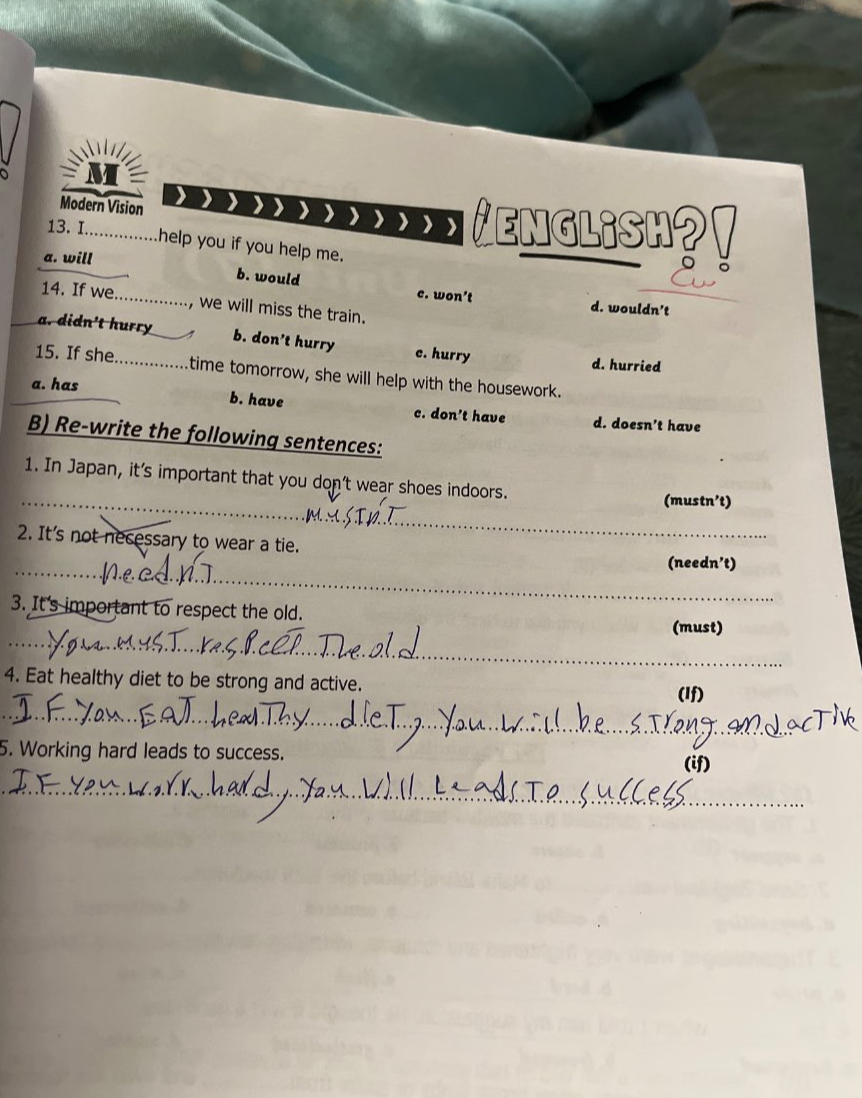 M
Modern Vision
ENGLISH?!
13. I..............help you if you help me.
a. will b. would c. won't d. wouldn't
14. If we.............., we will miss the train.
a. didn't hurry b. don't hurry c. hurry d. hurried
15. If she..............time tomorrow, she will help with the housework.
a. has b. have c. don't have d. doesn't have
B) Re-write the following sentences:
1. In Japan, it's important that you don't wear shoes indoors. (mustn't)
musTn'T
2. It's not necessary to wear a tie. (needn't)
needn'T
3. It's important to respect the old. (must)
You musT respecT The old
4. Eat healthy diet to be strong and active. (If)
IF You EaT healThy dieT, You will be sTrong and acTive
5. Working hard leads to success. (if)
IF you work hard, You Will Leads To success